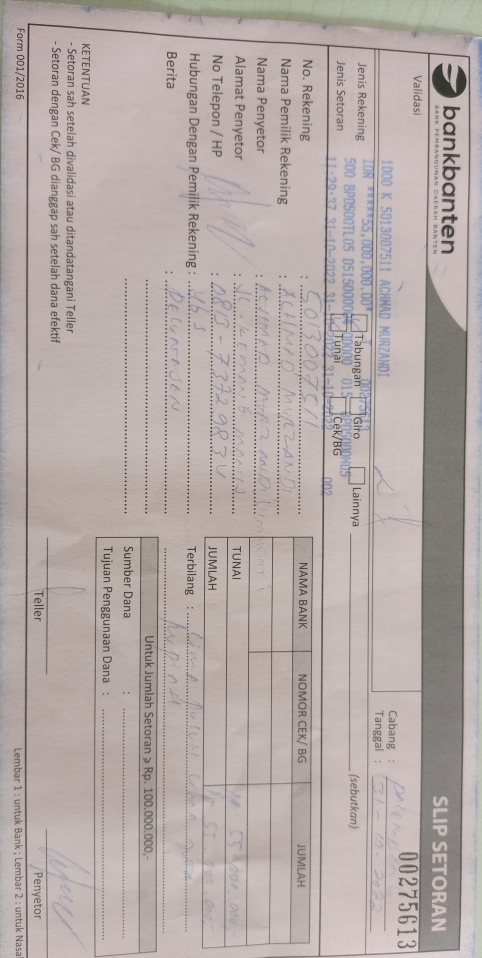 bankbanten
BANK PEMBANGUNAN DAERAH BANTEN
SLIP SETORAN
00275613
Validasi
1000 K 5013007511 ACHMAD MURZANDI
IDR *****55,000,000.00*
500 BPD500TL05
11:29:37 31-10-2022
002
Cabang :
Tanggal : 31 - 10 - 2022
Jenis Rekening
Tabungan
Giro
Lainnya
(sebutkan)
Jenis Setoran
Tunai
Cek/BG
No. Rekening : 5013007511
Nama Pemilik Rekening : ACHMAD MURZANDI
Nama Penyetor : ACHMAD MURZANDI
Alamat Penyetor : JL.
No Telepon / HP : 0813 - 7372
Hubungan Dengan Pemilik Rekening : Ybs
Berita : PELUNASAN
NAMA BANK
NOMOR CEK/ BG
JUMLAH
TUNAI Rp 55.000.000
JUMLAH Rp 55.000.000
Terbilang : LIMA PULUH LIMA JUTA
RUPIAH
Untuk Jumlah Setoran ≥ Rp. 100.000.000,-
Sumber Dana :
Tujuan Penggunaan Dana :
KETENTUAN
- Setoran sah setelah divalidasi atau ditandatangani Teller
- Setoran dengan Cek/ BG dianggap sah setelah dana efektif
Teller
Penyetor
Form 001/2016
Lembar 1 : untuk Bank ; Lembar 2 : untuk Nasa